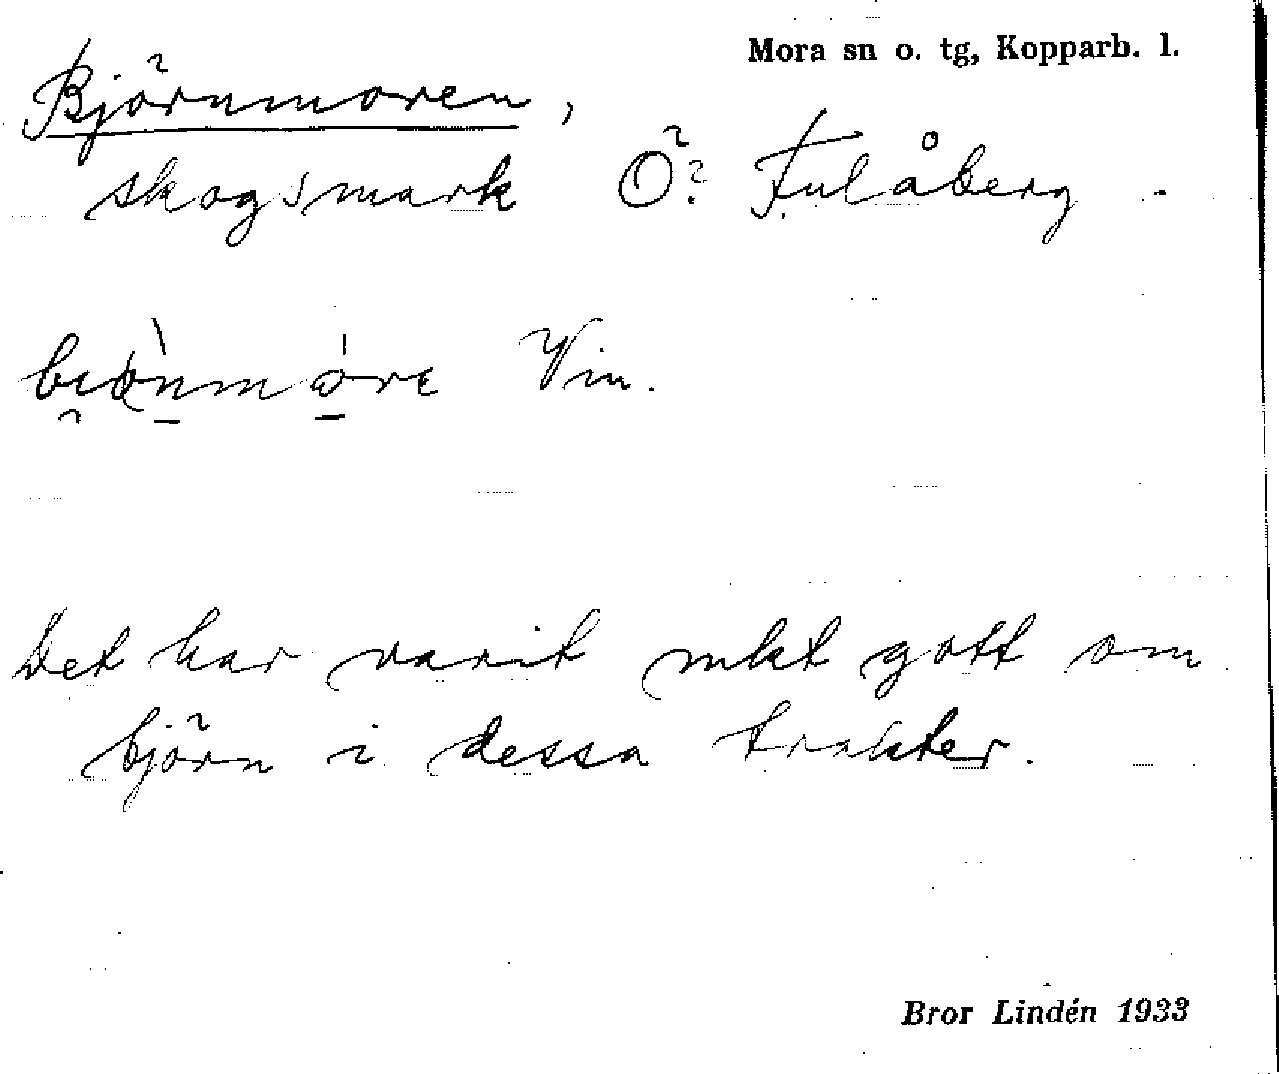 Mora sn o. tg, Kopparb. l.
Björnmoren,
skogsmark Ö? Fulåberg.
Vin.
Det har varit mkt gott om
björn i dessa trakter.
Bror Lindén 1933